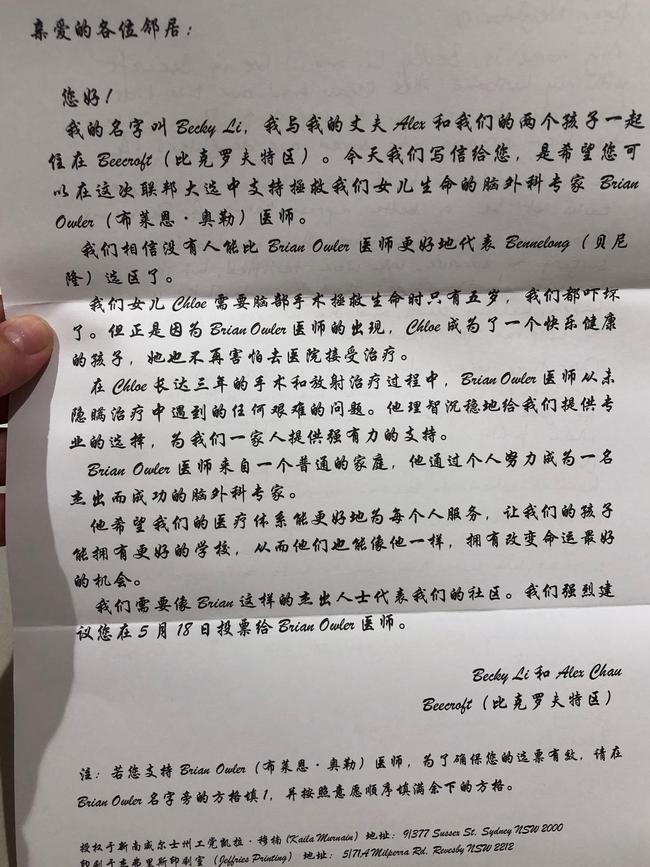 亲爱的各位邻居：
您好！
我的名字叫 Becky Li，我与我的丈夫 Alex 和我们的两个孩子一起
住在 Beecroft（比克罗夫特区）。今天我们写信给您，是希望您可
以在这次联邦大选中支持拯救我们女儿生命的脑外科专家 Brian
Owler（布莱恩·奥勒）医师。
我们相信没有人能比 Brian Owler 医师更好地代表 Bennelong（贝尼
隆）选区了。
我们女儿 Chloe 需要脑部手术拯救生命时只有五岁，我们都吓坏
了。但正是因为 Brian Owler 医师的出现，Chloe 成为了一个快乐健康
的孩子，她也不再害怕去医院接受治疗。
在 Chloe 长达三年的手术和放射治疗过程中，Brian Owler 医师从未
隐瞒治疗中遇到的任何艰难的问题。他理智沉稳地给我们提供专
业的选择，为我们一家人提供强有力的支持。
Brian Owler 医师来自一个普通的家庭，他通过个人努力成为一名
杰出而成功的脑外科专家。
他希望我们的医疗体系能更好地为每个人服务，让我们的孩子
能拥有更好的学校，从而他们也能像他一样，拥有改变命运最好
的机会。
我们需要像 Brian 这样的杰出人士代表我们的社区。我们强烈建
议您在 5 月 18 日投票给 Brian Owler 医师。
Becky Li 和 Alex Chau
Beecroft（比克罗夫特区）
注：若您支持 Brian Owler（布莱恩·奥勒）医师，为了确保您的选票有效，请在
Brian Owler 名字旁的方格填 1，并按照意愿顺序填满余下的方格。
授权于新南威尔士州工党凯拉·穆楠 (Kaila Murnain) 地址：9/377 Sussex St. Sydney NSW 2000
印刷于杰弗里斯印刷室 (Jeffries Printing) 地址：5/71A Milperra Rd. Revesby NSW 2212